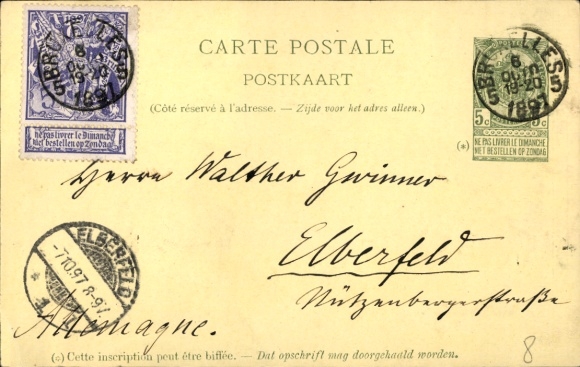 CARTE POSTALE
POSTKAART
(Côté réservé à l'adresse. — Zijde voor het adres alleen.)
BRUXELLES 5
6
OCT
19-20
1897
NE PAS LIVRER LE DIMANCHE
NIET BESTELLEN OP ZONDAG
BRUXELLES 5
6
OCT
19-20
1897
5c 5c
NE PAS LIVRER LE DIMANCHE
NIET BESTELLEN OP ZONDAG
(*)
Herrn Walther Gwinner
Elberfeld
Nützenbergerstraße
ELBERFELD
-7.10.97. 8-9V.
* 1
Allemagne.
8
(*) Cette inscription peut être biffée. — Dat opschrift mag doorgehaald worden.